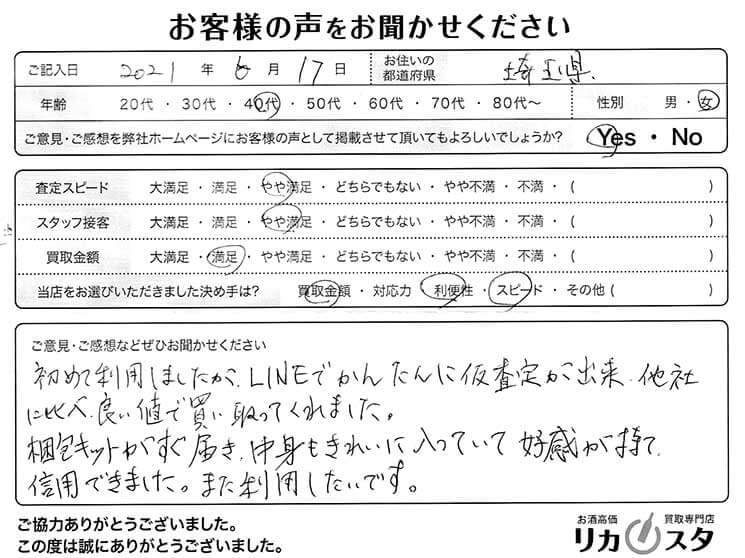 お客様の声をお聞かせください
ご記入日 2021 年 6 月 17 日 お住いの都道府県 埼玉県.
年齢 20代 ・ 30代 ・ 40代 ・ 50代 ・ 60代 ・ 70代 ・ 80代〜 性別 男 ・ 女
ご意見・ご感想を弊社ホームページにお客様の声として掲載させて頂いてもよろしいでしょうか? Yes ・ No
査定スピード 大満足 ・ 満足 ・ やや満足 ・ どちらでもない ・ やや不満 ・ 不満 ・ ( )
スタッフ接客 大満足 ・ 満足 ・ やや満足 ・ どちらでもない ・ やや不満 ・ 不満 ・ ( )
買取金額 大満足 ・ 満足 ・ やや満足 ・ どちらでもない ・ やや不満 ・ 不満 ・ ( )
当店をお選びいただきました決め手は? 買取金額 ・ 対応力 ・ 利便性 ・ スピード ・ その他 ( )
ご意見・ご感想などぜひお聞かせください
初めて利用しましたが、LINEでかんたんに仮査定が出来、他社
に比べ、良い値で買い取ってくれました。
梱包キットがすぐ届き、中身もきれいに入っていて好感が持て、
信用できました。また利用したいです。
ご協力ありがとうございました。
この度は誠にありがとうございました。
お酒高価 買取専門店
リカスタ